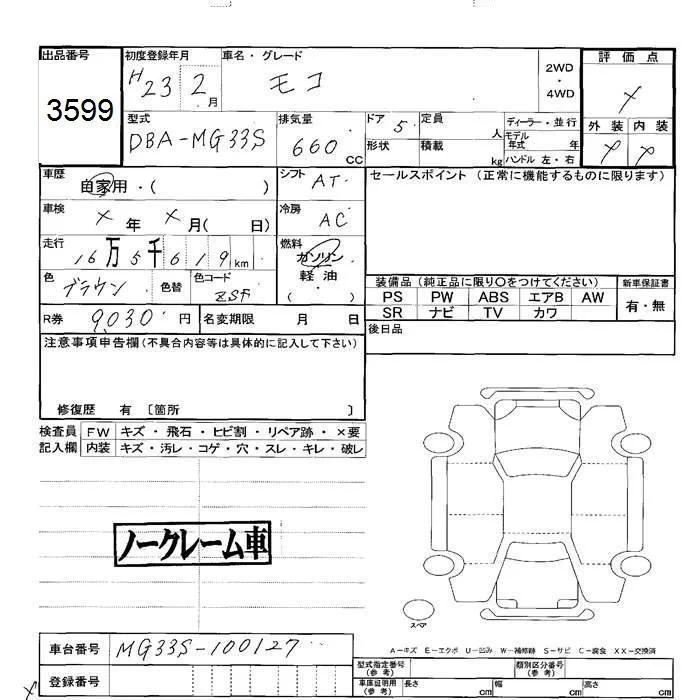 出品番号
3599
初度登録年月
H23 2月
車名・グレード
モコ
2WD・4WD
評価点
×
型式
DBA-MG33S
排気量
660 CC
ドア 5
形状
定員 人
積載 kg
ディーラー・並行
モデル年式 年
ハンドル 左・右
外装 内装
× ×
車歴
自家用・( )
シフト AT
セールスポイント (正常に機能するものに限ります)
車検
×年 ×月( 日)
冷房 AC
走行
16万5千619km
燃料
ガソリン
軽油
( )
色 ブラウン 色替
色コード ZSF
装備品 (純正品に限り〇をつけてください)
新車保証書
PS PW ABS エアB AW
有・無
SR ナビ TV カワ
R券 9,030円
名変期限 月 日
後日品
注意事項申告欄(不具合内容等は具体的に記入して下さい)
修復歴 有 〔箇所 〕
検査員 FW キズ・飛石・ヒビ割・リペア跡・×要
記入欄 内装 キズ・汚レ・コゲ・穴・スレ・キレ・破レ
ノークレーム車
スペア
A-キズ E-エクボ U-凹み W-補修跡 S-サビ C-腐食 XX-交換済
車台番号 MG33S-100127
登録番号
型式指定番号(参考)
類別区分番号(参考)
車庫証明用(参考) 長さ cm 幅 cm 高さ cm